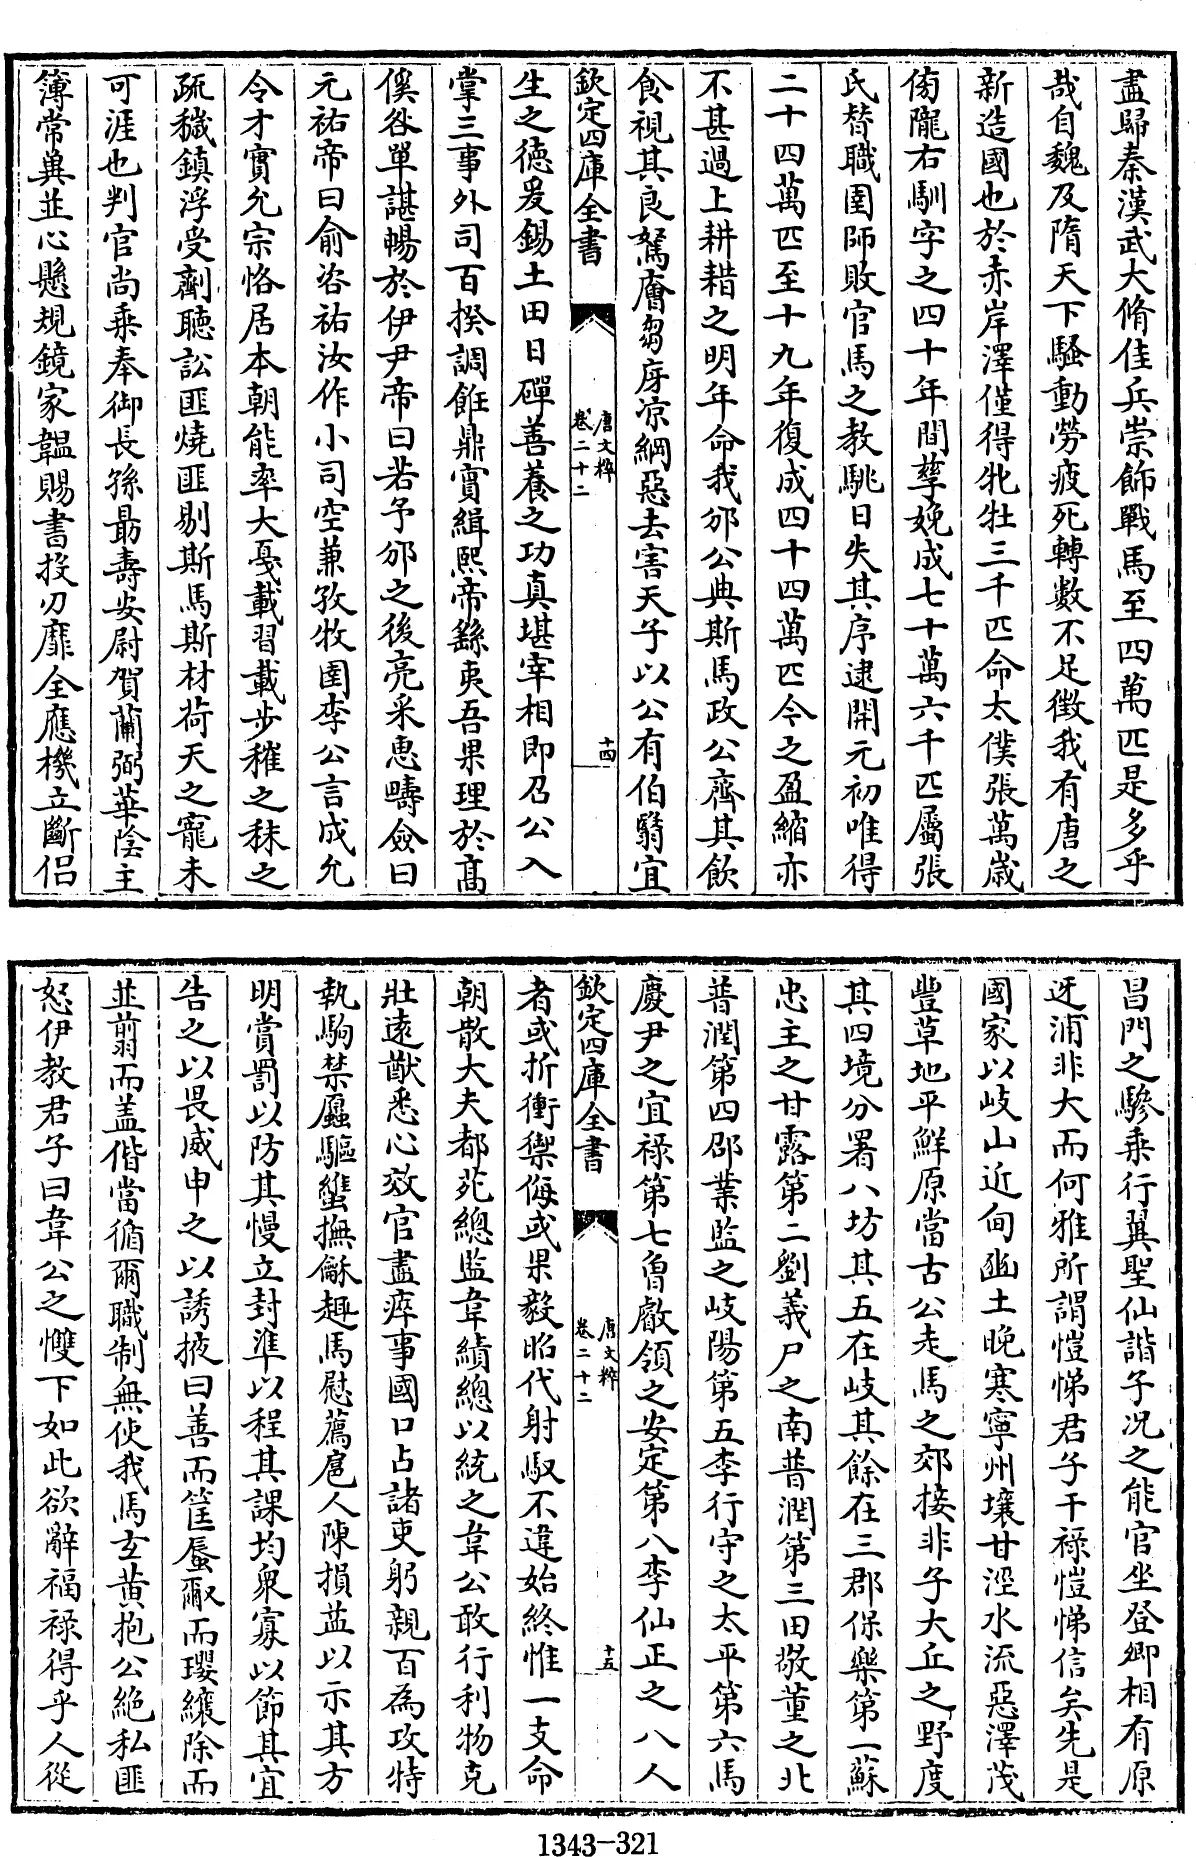 盡歸秦漢武大脩佳兵崇飾戰馬至四萬匹是多乎
哉自魏及隋天下騷動勞疲死轉數不足徵我有唐之
新造國也於赤岸澤僅得牝牡三千匹命太僕張萬歳
傍隴右馴字之四十年間孳娩成七十萬六千匹屬張
氏替職圉師敗官馬之教駣日失其序逮開元初唯得
二十四萬匹至十九年復成四十四萬匹今之盈縮亦
不甚過上耕耤之明年命我邠公典斯馬政公齊其飲
食視其良駑廥芻庌涼綱惡去害天子以公有伯翳宜
欽定四庫全書
唐文粹
卷二十二
十四
生之徳爰錫土田日磾善養之功真堪宰相即召公入
掌三事外司百揆調飪鼎實緝熙帝繇夷吾果理於髙
傒咎單諶暢於伊尹帝曰若予邠之後亮采惠疇僉曰
元祐帝曰俞咨祐汝作小司空兼孜牧圉李公言成允
令才實允宗恪居本朝能率大戛載習載步稚之秣之
疏穢鎮浮受劑聽訟匪燒匪剔斯馬斯材荷天之寵未
可涯也判官尚乘奉御長孫勗壽安尉賀蘭弼華陰主
簿常㢲並心懸規鏡家韞賜書投刃靡全應機立斷侣
昌門之驂乘行翼聖仙諧子况之能官坐登卿相有原
迓浦非大而何雅所謂愷悌君子干祿愷悌信矣先是
國家以岐山近甸豳土晚寒寧州壤甘涇水流惡澤茂
豐草地平鮮原當古公走馬之郊接非子大丘之野度
其四境分署八坊其五在岐其餘在三郡保樂第一蘇
忠主之甘露第二劉義尸之南普潤第三田敬董之北
普潤第四邵業監之岐陽第五李行守之太平第六馬
慶尹之宜祿第七魯㕡領之安定第八李仙正之八人
欽定四庫全書
唐文粹
卷二十二
十五
者或折衝禦侮或果毅昭代射馭不違始終惟一支命
朝散大夫都苑總監韋績總以統之韋公敢行利物克
壯遠猷悉心效官盡瘁事國口占諸吏躬親百為攻特
執駒禁驫驅蠥撫龢趣馬慰薦扈人陳損益以示其方
明賞罰以防其慢立封準以程其課均衆寡以節其宜
告之以畏威申之以誘掖曰善而筐蜃㕞而瓔纕除而
並翦而盖偕當循爾職制無使我馬玄黄抱公絶私匪
怒伊教君子曰韋公之愯下如此欲辭福祿得乎人從
1343-321